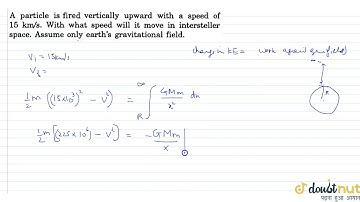 A particle is fired vertically upward with a speed of
15 km/s. With what speed will it move in intersteller
space. Assume only earth's gravitational field.
V₁ = 15km/s
V₂ =
change in KE = work against
½m ((15×10³)² - V²) = ∫_R^∞ GMm/x² dx
R
½m [225×10⁶ - V²] = -GMm/x |
doubtnut
पढ़ना हुआ आसान